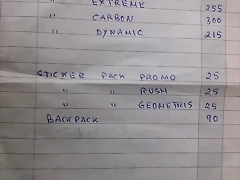 " EXTREME 255
" CARBON 300
" DYNAMIC 215
STICKER PACK PROMO 25
" " RUSH 25
" " GEOMETRIS 25
BACKPACK 90